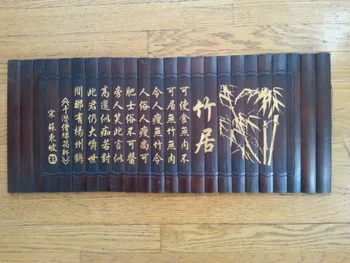 竹居
可使食無肉不
可居無竹無肉
令人瘦無竹令
人俗人瘦尚可
肥士俗不可醫
旁人笑此言似
高還似痴若對
此君仍大嚼世
間那有楊州鶴
《于潛僧綠筠軒》
宋 蘇東坡